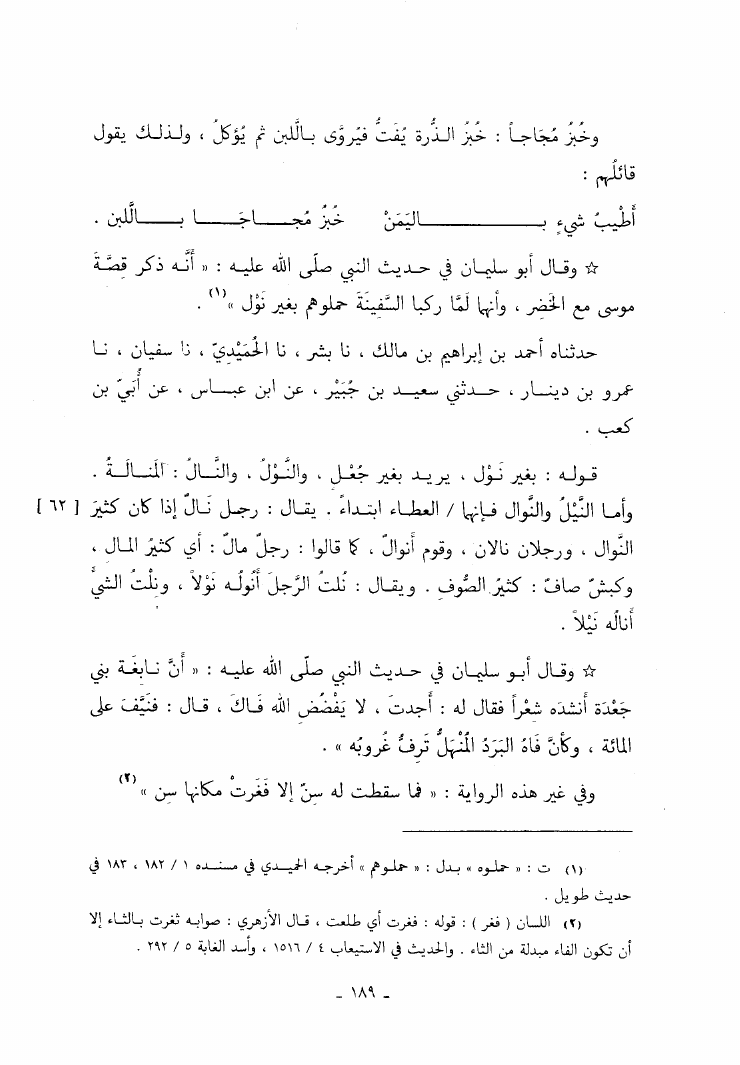 وخُبزُ مُجَاجاً : خُبزُ الذُّرة يُفَتُّ فيُروَّى باللَّبن ثم يُؤكلُ ، ولذلك يقول
قائلُهم :
أَطْيبُ شيءٍ باليَمَنْ خُبزُ مُجاجَا باللَّبن .
☆ وقال أبو سليمان في حديث النبي صلّى الله عليه : « أنَّه ذكر قِصَّةَ
موسى مع الخَضر ، وأنها لَمَّا ركبا السَّفينَةَ حملوهم بغير نَوْل »(١) .
حدثناه أحمد بن إبراهيم بن مالك ، نا بشر ، نا الحُمَيْدِيّ ، نا سفيان ، نا
عمرو بن دينار ، حدثني سعيد بن جُبَيْر ، عن ابن عباس ، عن أُبَيّ بن
كعب .
قوله : بغير نَوْل ، يريد بغير جُعْلٍ ، والنَّوْلُ ، والنَّالُ : المَنالَةُ .
وأما النَّيْلُ والنَّوال فإنها / العطاء ابتداءً . يقال : رجل نَالٌ إذا كان كثيرَ [ ٦٢ ]
النَّوال ، ورجلان نالان ، وقوم أَنوالٌ ، كما قالوا : رجلٌ مالٌ : أي كثيرُ المال ،
وكبشٌ صافٌ : كثيرُ الصُّوفِ . ويقال : نُلتُ الرَّجلَ أَنُولُه نَوْلاً ، ونِلْتُ الشيَّ
أنالُه نَيْلاً .
☆ وقال أبو سليمان في حديث النبي صلّى الله عليه : « أنَّ نابغَة بني
جَعْدَة أنشده شعْراً فقال له : أجدتَ ، لا يَفْضُضِ الله فَاكَ ، قال : فنَيَّفَ على
المائة ، وكأنَّ فَاهُ البَرَدُ المُنْهَلُّ تَرِفُّ غُروبُه » .
وفي غير هذه الرواية : « فما سقطت له سنّ إلا فَغَرتْ مكانها سن »(٢)
(١) ت : « حملوه » بدل : « حملوهم » أخرجه الحميدي في مسنده ١ / ١٨٢ ، ١٨٣ في
حديث طويل .
(٢) اللسان ( فغر ) : قوله : فغرت أي طلعت ، قال الأزهري : صوابه ثغرت بالثاء إلا
أن تكون الفاء مبدلة من الثاء . والحديث في الاستيعاب ٤ / ١٥١٦ ، وأسد الغابة ٥ / ٢٩٢ .
- ١٨٩ -